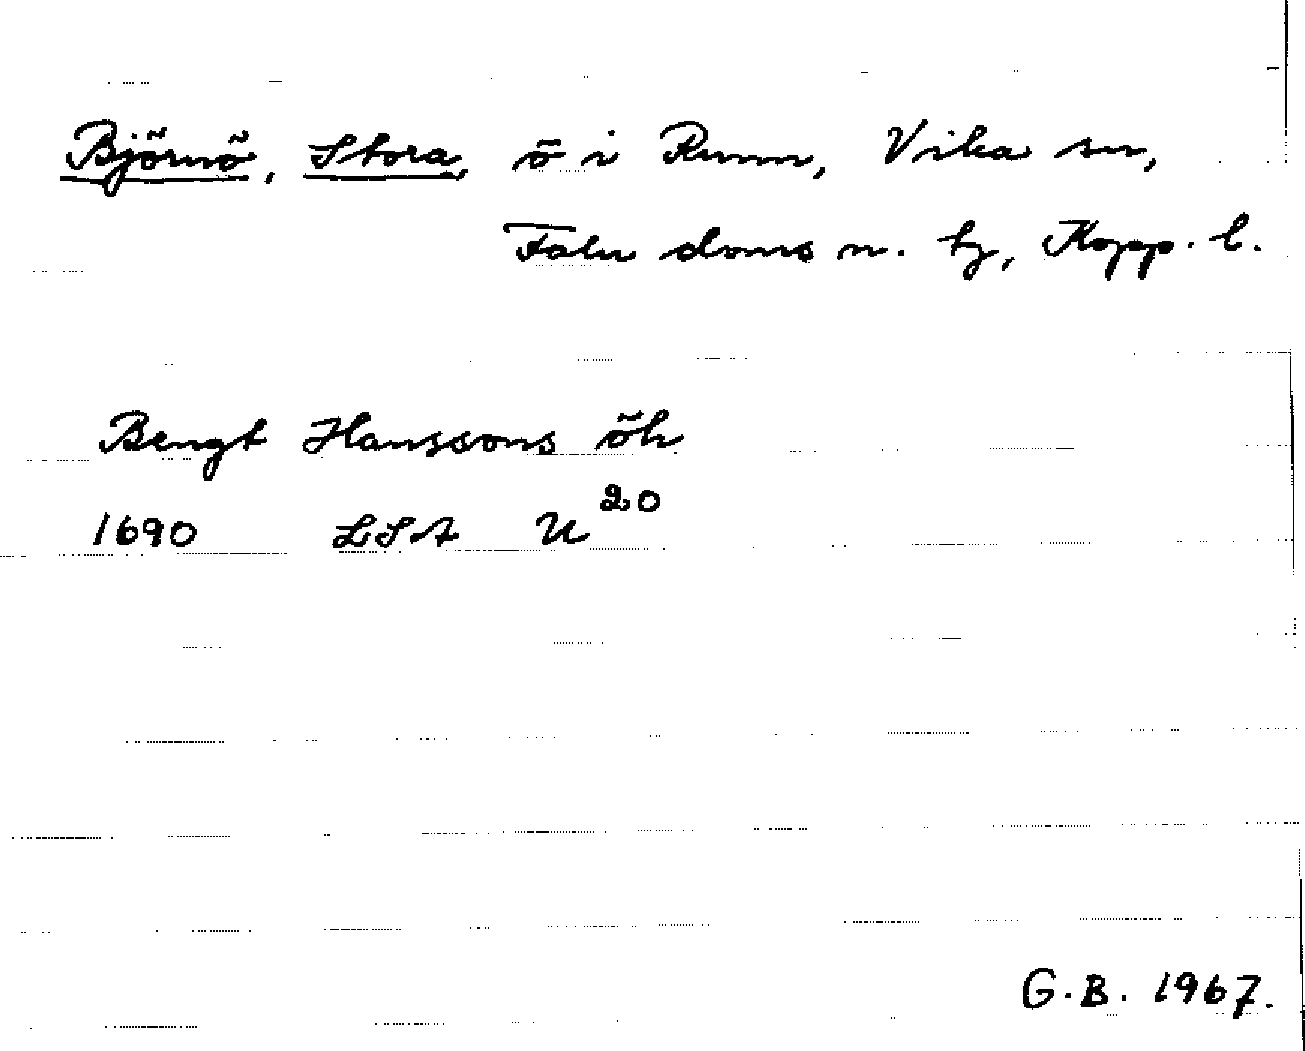 Björnö, Stora, ö i Runn, Vika sn,
Falu doms n. tg, Kopp. l.
Bengt Hanssons öh
1690 LSA U20
G.B. 1967.